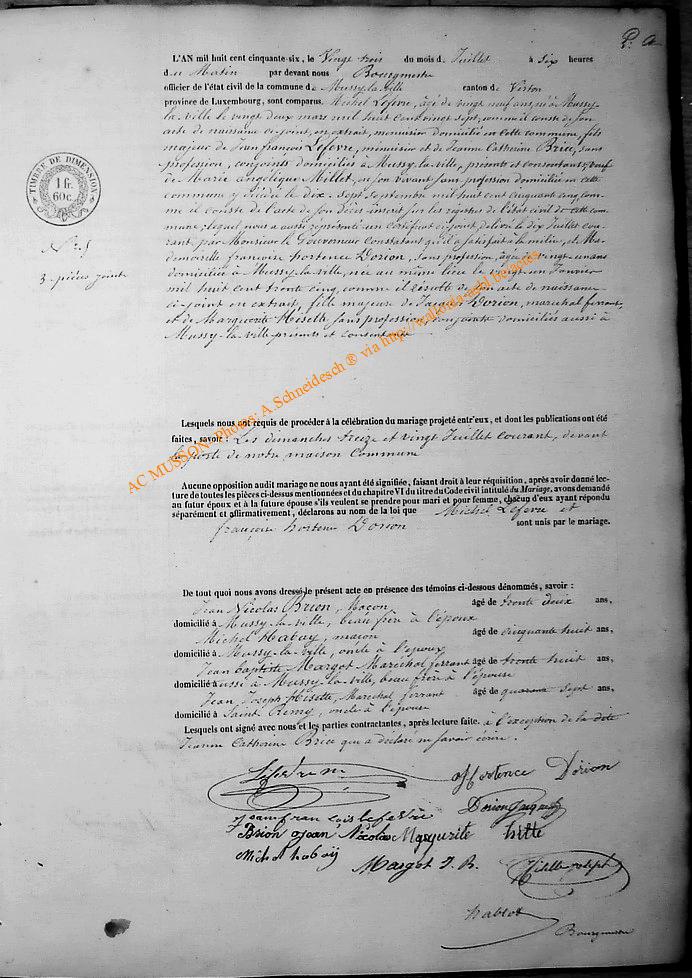 P. A.
L'AN mil huit cent cinquante-six, le Vingt trois du mois de Juillet à Six heures
du Matin par devant nous Bourgmestre
officier de l'état civil de la commune de Mussy-la-Ville canton de Virton
province de Luxembourg, sont comparus Michel Lefevre, âgé de vingt neuf ans, né à Mussy-
la ville le vingt deux mars mil huit cent vingt sept, comme il conste de son
acte de naissance ci-joint, en extrait, menuisier domicilié en cette commune, fils
majeur de Jean françois Lefevre, menuisier et de Jeanne Catherine Brice, sans
profession, conjoints domiciliés à Mussy-la-ville, présents et consentants, veuf
de Marie angélique Millet, en son vivant sans profession domiciliée en cette
commune y décédée le dix-sept septembre mil huit cent cinquante cinq, com-
me il conste de l'acte de son décès inscrit sur les registres de l'état civil de cette com-
mune; lequel nous a aussi représenté un certificat ci-joint, délivré le dix Juillet cou-
rant, par Monsieur le Gouverneur constatant qu'il a satisfait à la milice, et Ma-
demoiselle françoise hortence Dorion, sans profession, âgée de vingt-un ans
domiciliée à Mussy-la-ville, née au même lieu le Janvier
mil huit cent trente cinq, comme il résulte de son acte de naissance
ci-joint en extrait, fille majeure de Jacques Dorion, marechal ferrant,
et de Marguerite Hisette sans profession, conjoints domiciliés aussi à
Mussy-la-ville présents et consentants
TIMBRE DE DIMENSION
1 fr.
60 c.
N° 5
3 pièces joint
Lesquels nous ont requis de procéder à la célébration du mariage projeté entr'eux, et dont les publications ont été
faites, savoir: Les dimanches treize et vingt Juillet courant, devant
la porte de notre maison Commune
Aucune opposition audit mariage ne nous ayant été signifiée, faisant droit à leur réquisition, après avoir donné lec-
ture de toutes les pièces ci-dessus mentionnées et du chapitre VI du titre du Code civil intitulé du Mariage, avons demandé
au futur époux et à la future épouse s'ils veulent se prendre pour mari et pour femme, chacun d'eux ayant répondu
séparément et affirmativement, déclarons au nom de la loi que Michel Lefevre et
françoise hortence Dorion sont unis par le mariage.
De tout quoi nous avons dressé le présent acte en présence des témoins ci-dessous dénommés, savoir:
Jean Nicolas Brion, Maçon âgé de trente deux ans,
domicilié à Mussy-la-ville, beau frère à l'époux
Michel Habay, maçon âgé de cinquante huit ans,
domicilié à Mussy-la-ville, oncle à l'époux
Jean baptiste Margot Marechal ferrant âgé de trente huit ans,
domicilié aussi à Mussy-la-ville, beau frère à l'épouse
Jean Joseph Hisette, Marechal ferrant âgé de quarante sept ans,
domicilié à Saint Remy, oncle à l'épouse
Lesquels ont signé avec nous et les parties contractantes, après lecture faite. à l'exception de la dite
Jeanne Catherine Brice qui a déclaré ne savoir écrire.
Lefevre m
Hortence Dorion
Jean fran cois lefevre
Dorion Jacques
Brion Jean Nicolas
Marguerite hitte
Michel habay
Margot J. B.
Hisette joseph
hablot
Bourgmestre
AC MUSSON. Photos: A. Schneidesch ® via http://wallonia-asbl.be/actes